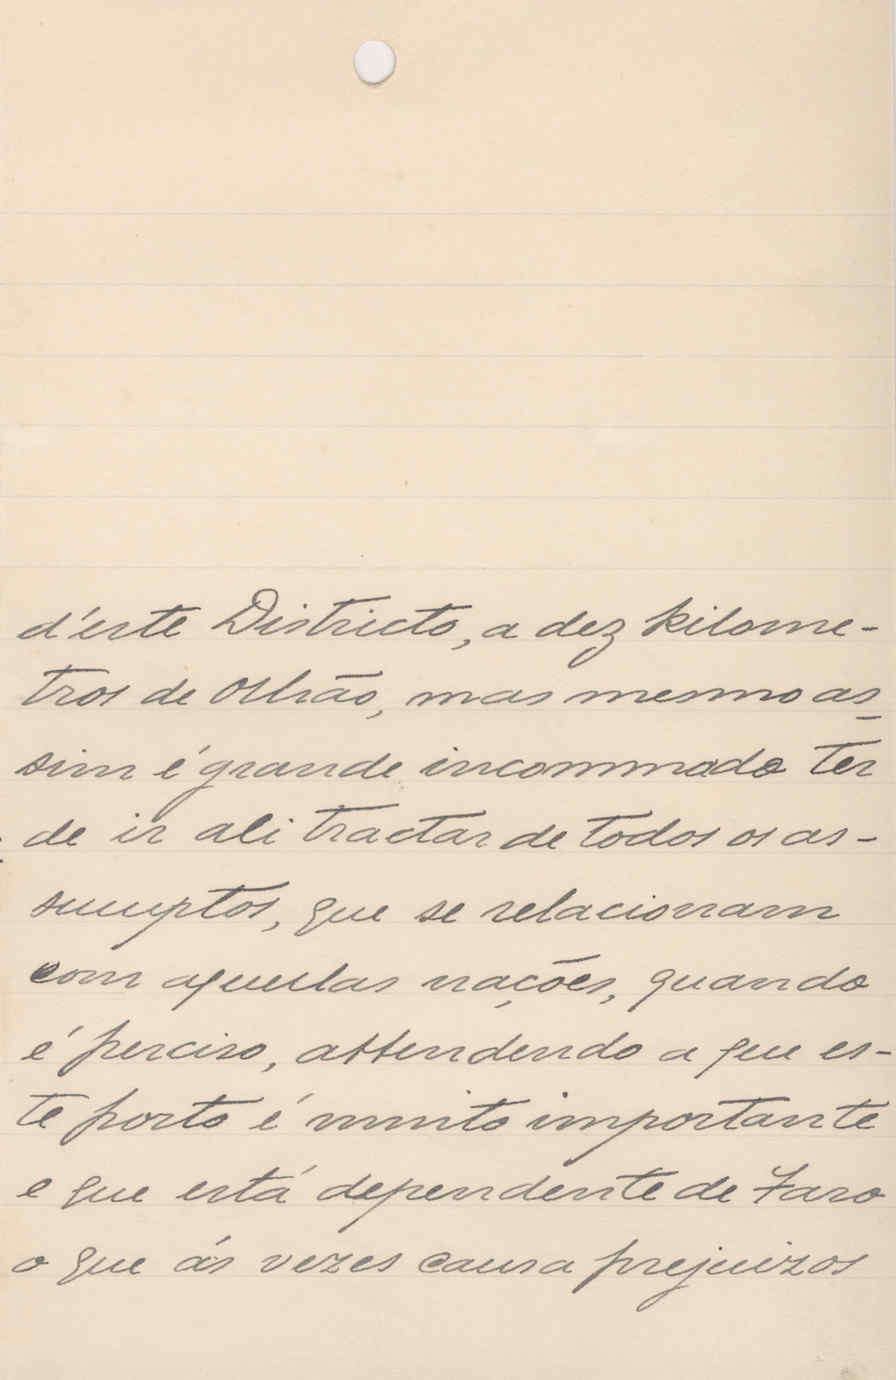 d'este Districto, a dez kilome-
tros de Olhão, mas mesmo as
sim é grande incommodo ter
de ir ali tractar de todos os as-
sumptos, que se relacionam
com aquellas nações, quando
é perciso, attendendo a que es-
te porto é muito importante
e que está dependente de Faro
o que ás vezes causa prejuizos